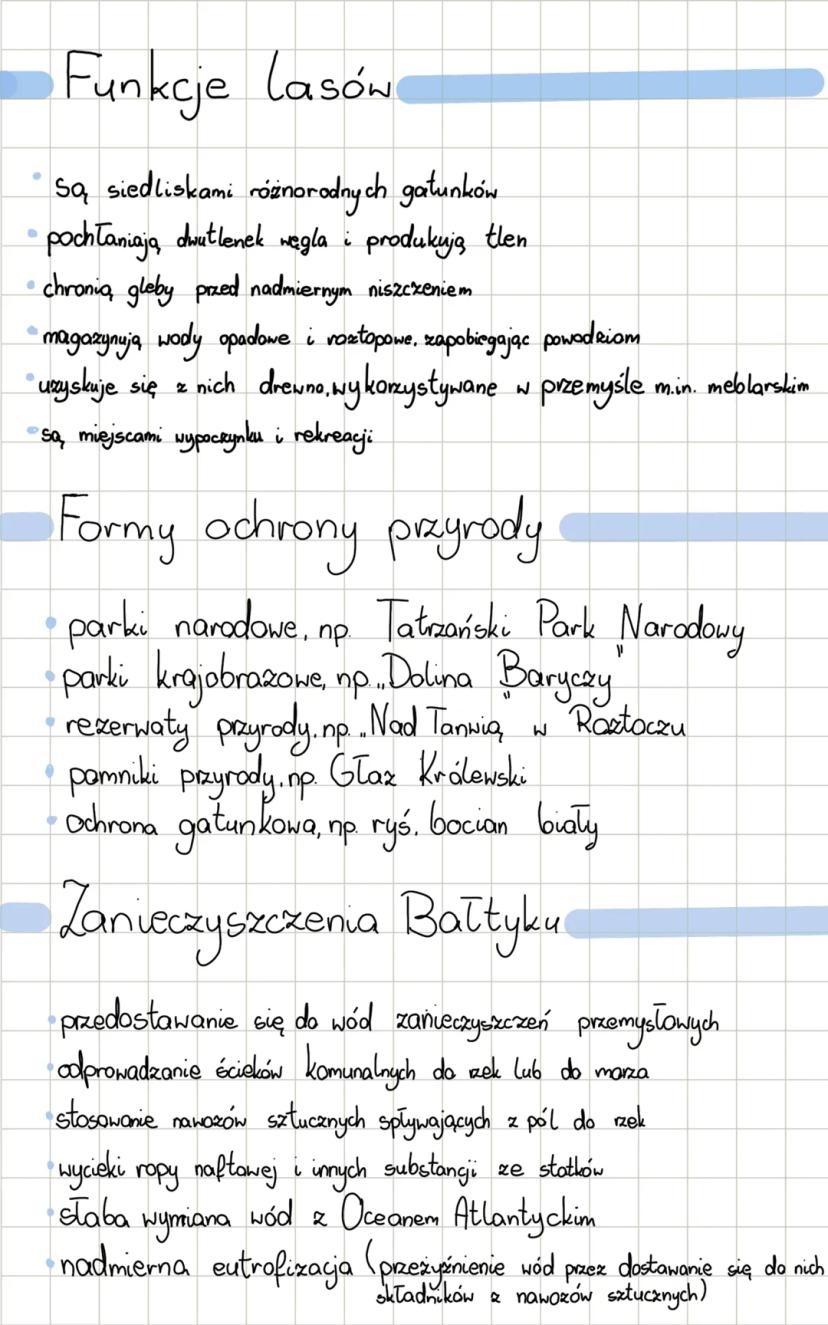 Funkcje lasów
są siedliskami różnorodnych gatunków
pochłaniają dwutlenek węgla i produkują tlen
chronią gleby przed nadmiernym niszczeniem
magazynują wody opadowe i roztopowe, zapobiegając powodziom
uzyskuje się z nich drewno, wykorzystywane w przemyśle m.in. meblarskim
są miejscami wypoczynku i rekreacji
Formy ochrony przyrody
parki narodowe, np. Tatrzański Park Narodowy
parki krajobrazowe, np. „Dolina Baryczy"
rezerwaty przyrody, np. „Nad Tanwią" w Roztoczu
pomniki przyrody, np. Głaz Królewski
ochrona gatunkowa, np. ryś, bocian biały
Zanieczyszczenia Bałtyku
przedostawanie się do wód zanieczyszczeń przemysłowych
odprowadzanie ścieków komunalnych do rzek lub do morza
stosowanie nawozów sztucznych spływających z pól do rzek
wycieki ropy naftowej i innych substancji ze statków
słaba wymiana wód z Oceanem Atlantyckim
nadmierna eutrofizacja (przeżyźnienie wód przez dostawanie się do nich
składników z nawozów sztucznych)